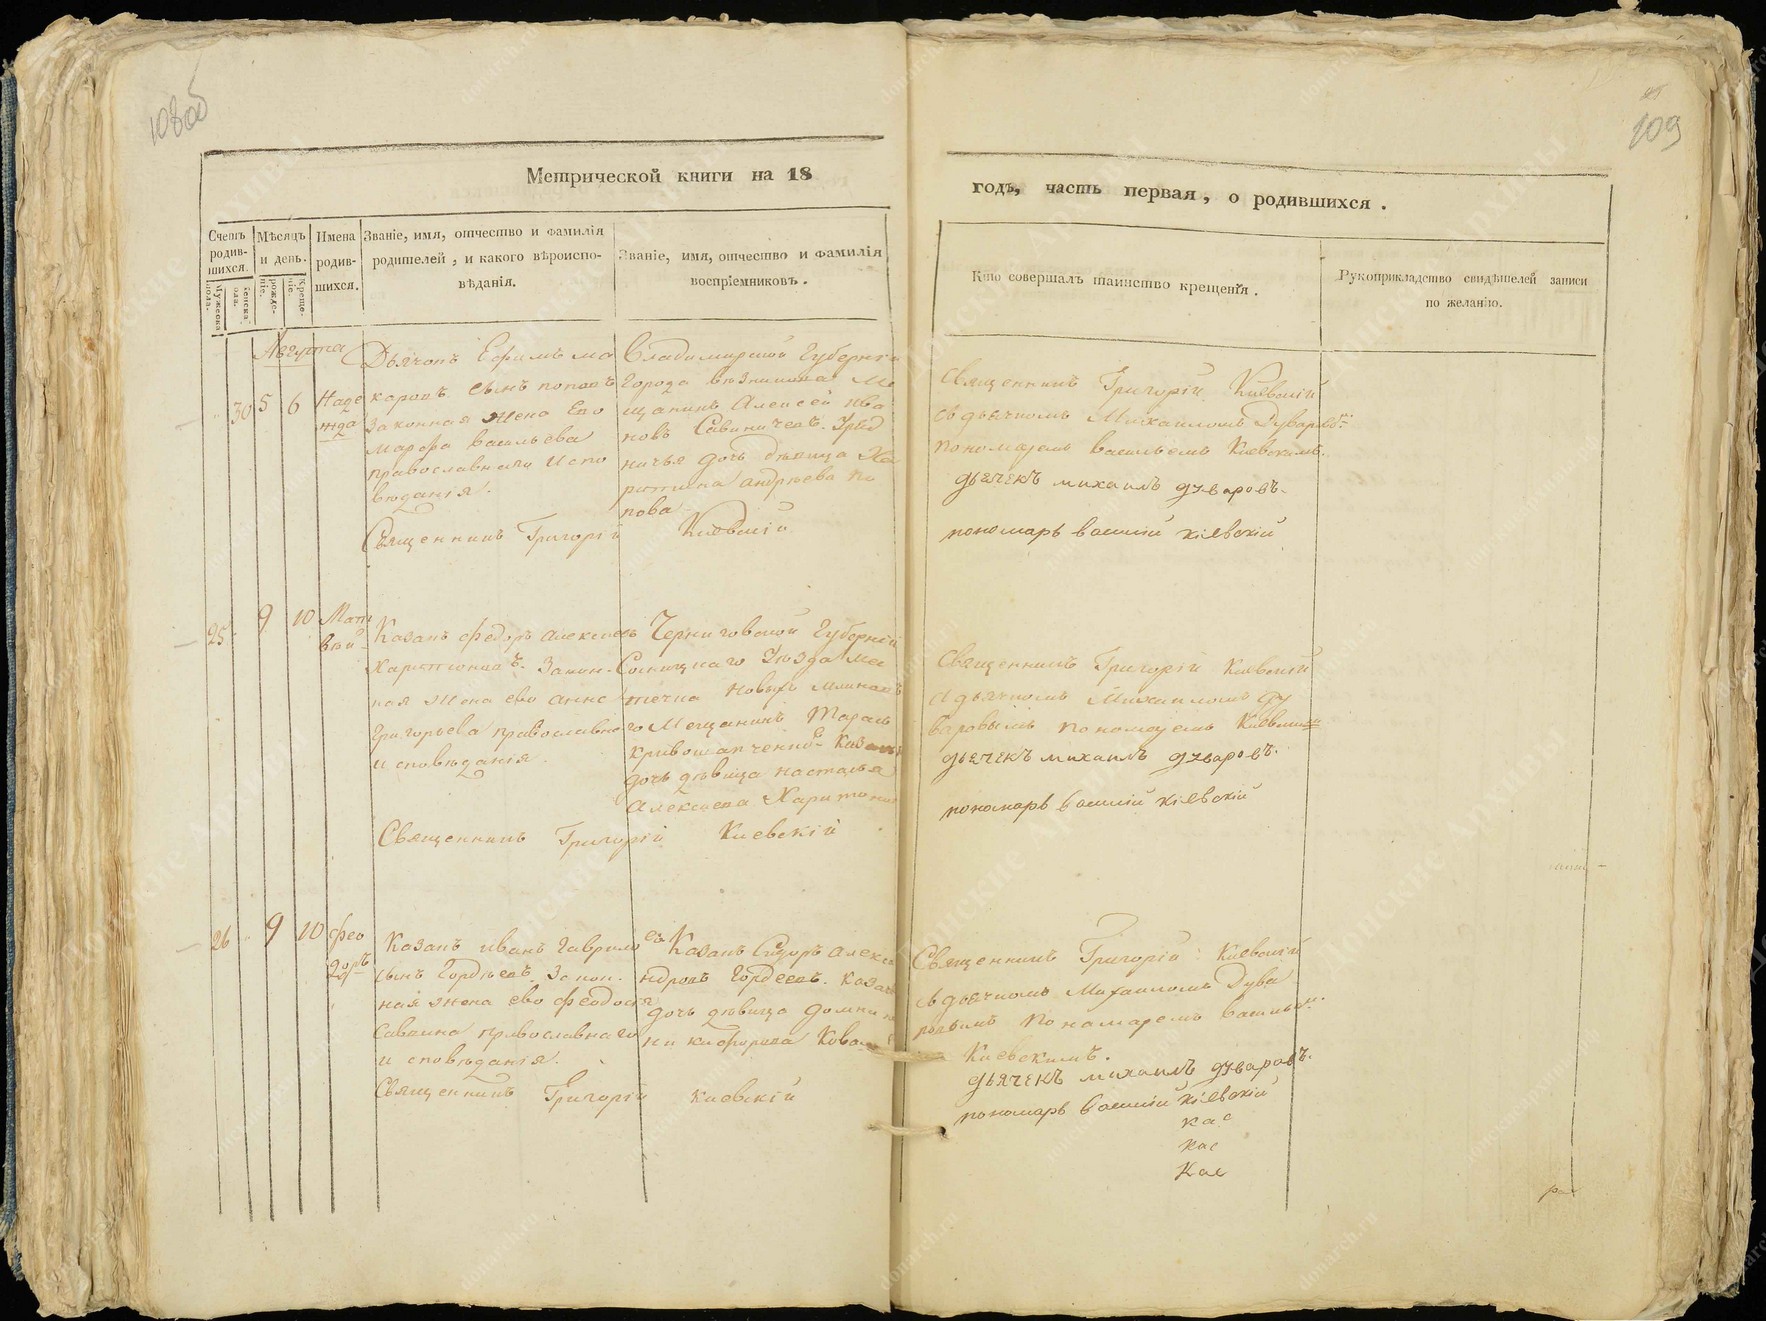 108об
109
Метрической книги на 18
годъ, часть первая, о родившихся.
Счетъ родив-шихся.
Мужеска пола.
Женска пола.
Мѣсяцъ и день.
рожде-нія.
Креще-нія.
Имена родив-шихся.
Званіе, имя, отчество и фамилія
родителей, и какого вѣроиспо-
вѣданія.
Званіе, имя, отчество и фамилія
воспріемниковъ.
Кто совершалъ таинство крещенія.
Рукоприкладство свидѣтелей записи
по желанію.
Августа
30 5 6 Наде
жда
Дьячокъ Ефимъ ма
каровъ сынъ поповъ
Законная жена Его
Марфа васильева
православнаго испо
вѣданія.
Владимирской Губерніи
Города вязникина Ме
щанинъ Алексей Ива
новъ Савиничевъ.
дочь дѣвица Ха
ритина андрѣева по
пова
Священникъ Григорій Киевскій
Священникъ Григорій Киевскій
съ дьячкомъ Михаиломъ Дуваровы
пономаремъ васильемъ Киевскимъ.
дьячекъ михаилъ дуваровъ.
пономарь василій кіевскій
25 9 10 Мат
вѣй
Казакъ федоръ алексеевъ
Харитоновъ. Закон-
ная жена ево анна
Григорьева православно
исповѣданія.
Черниговской Губерніи
Сосницкаго Уѣзда Мес
течка новыхъ млиновъ
Мещанинъ Тарасъ
кривошапченко
дочь дѣвица наталья
Алексеева Харитонова
Священникъ Григорій Киевскій
Священникъ Григорій Киевскій
съ дьячкомъ Михаиломъ Ду
варовымъ пономаремъ Киевским
дьячекъ михаилъ дуваровъ.
пономарь василій кіевскій
26 9 10 Фео
доръ
Казакъ иванъ Гаврило
въ
сынъ Гордѣевъ. Закон.
ная жена ево феодосія
Саввина православнаго
исповѣданія.
Казакъ Сидоръ алекса
ндровъ Гордеевъ. Казачья
дочь дѣвица домна
никифорова Кова
Священникъ Григорій киевскій
Священникъ Григорій Киевскій
съ дьячкомъ Михаиломъ Дува
ровымъ Пономаремъ василье
Киевскимъ.
дьячекъ михаилъ дуваровъ.
пономарь василій кіевскій
кас
кас
Кас